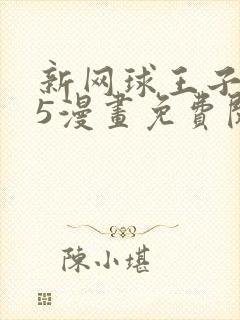 新网球王子
5漫畫免費
陳小堪